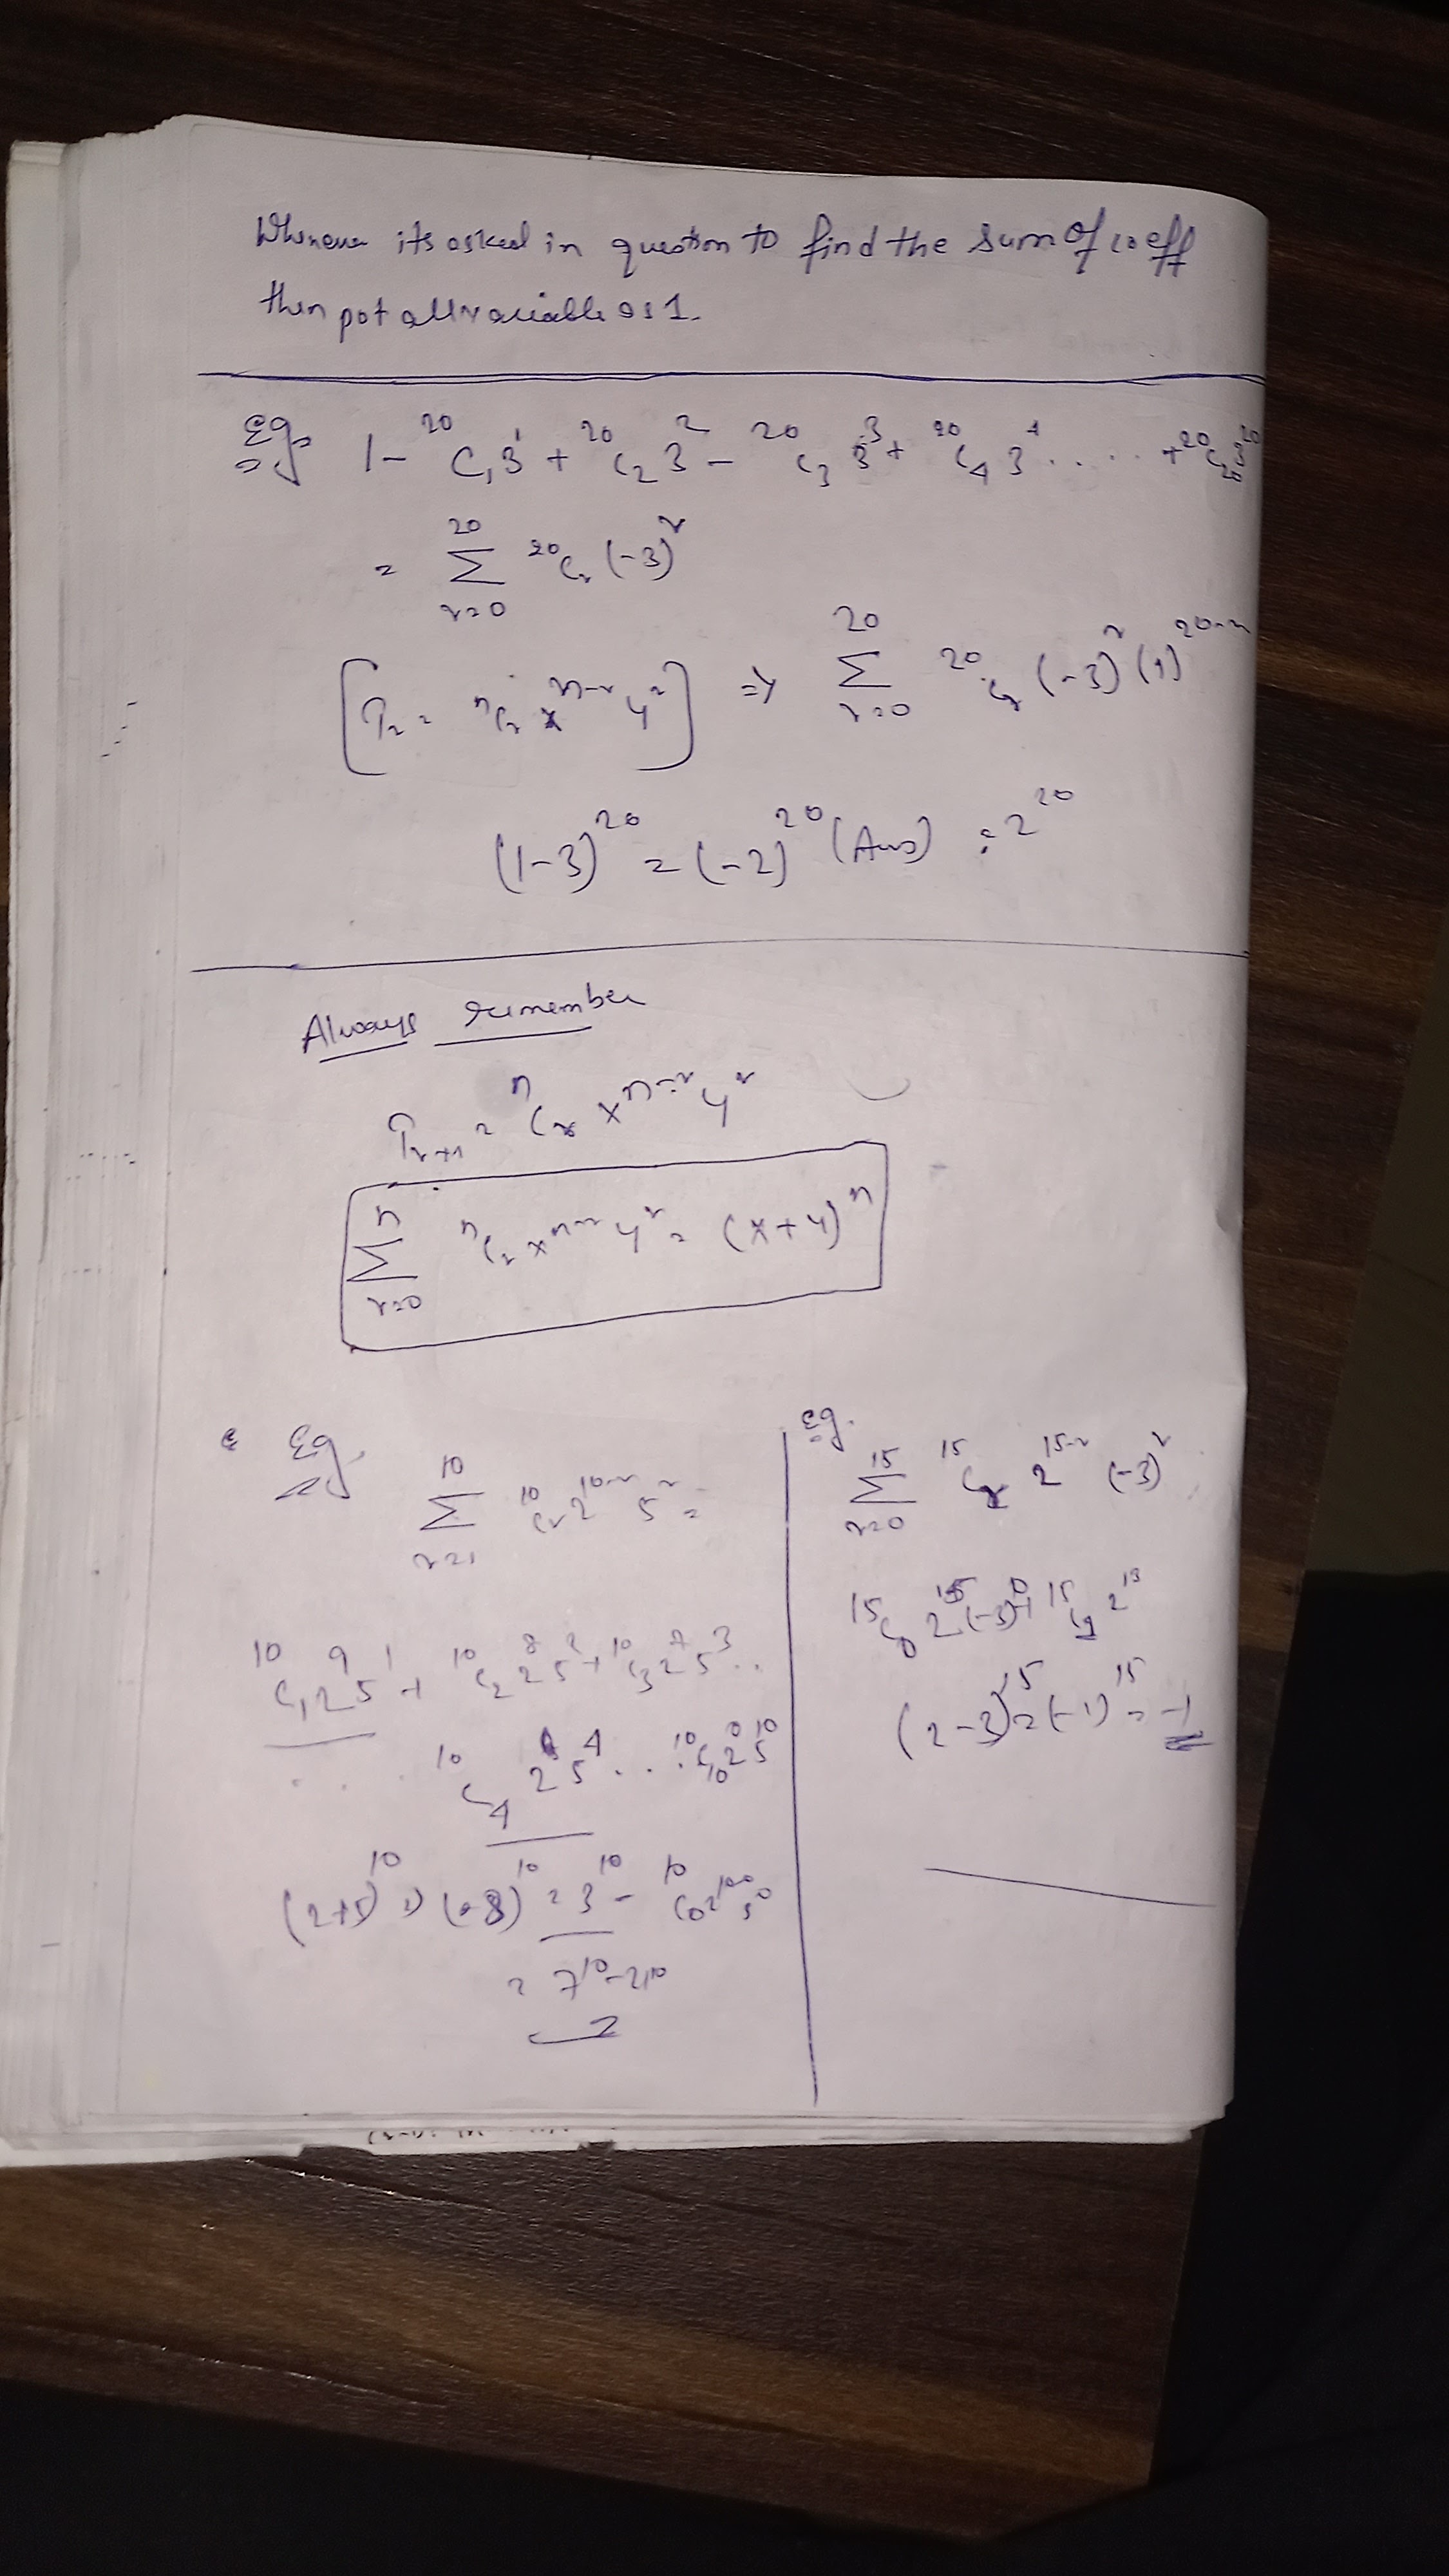 Whenever its asked in question to find the sum of coeff
then put all variable as 1.
Eg. 1 - ²⁰C₁3¹ + ²⁰C₂ 3² - ²⁰C₃ 3³ + ²⁰C₄ 3⁴ ..... + ²⁰C₂₀3²⁰
= Σ_{r=0}^{20} ²⁰Cᵣ (-3)ʳ
[Tᵣ = ⁿCᵣ xⁿ⁻ʳ yʳ] ⇒ Σ_{r=0}^{20} ²⁰Cᵣ (-3)ʳ (1)²⁰⁻ʳ
(1-3)²⁰ = (-2)²⁰ (Ans) = 2²⁰
Always remember
Tᵣ₊₁ = ⁿCᵣ xⁿ⁻ʳ yʳ
Σ_{r=0}^{n} ⁿCᵣ xⁿ⁻ʳ yʳ = (x+y)ⁿ
Eg. Σ_{r=1}^{10} ¹⁰Cᵣ 2¹⁰⁻ʳ 5ʳ =
¹⁰C₁ 2⁹ 5¹ + ¹⁰C₂ 2⁸ 5² + ¹⁰C₃ 2⁷ 5³ ..
... ¹⁰C₄ 2⁶ 5⁴ .... ¹⁰C₁₀ 2⁰ 5¹⁰
(2+5)¹⁰ - ¹⁰C₀ 2¹⁰ 5⁰
= 7¹⁰ - 2¹⁰
Eg. Σ_{r=0}^{15} ¹⁵Cᵣ 2¹⁵⁻ʳ (-3)ʳ
¹⁵C₀ 2¹⁵ (-3)⁰ + ¹⁵C 2¹³
(2-3)¹⁵ = (-1)¹⁵ = -1